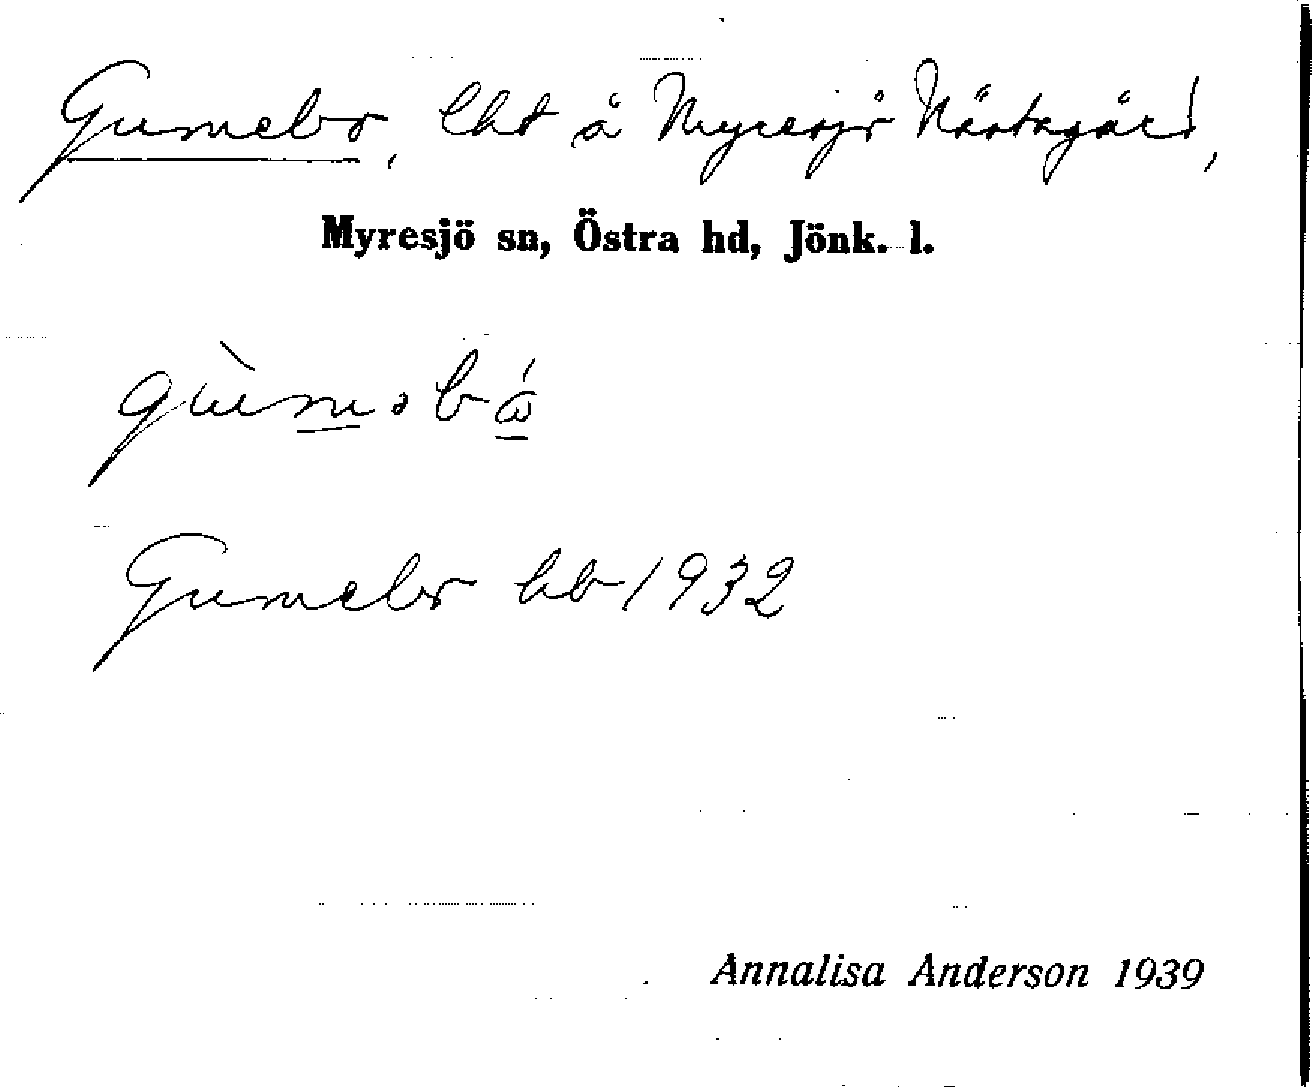 Gumebo, lht å Myresjö Nästagård,
Myresjö sn, Östra hd, Jönk. l.
gùməbó
Gumebo hb 1932
Annalisa Anderson 1939